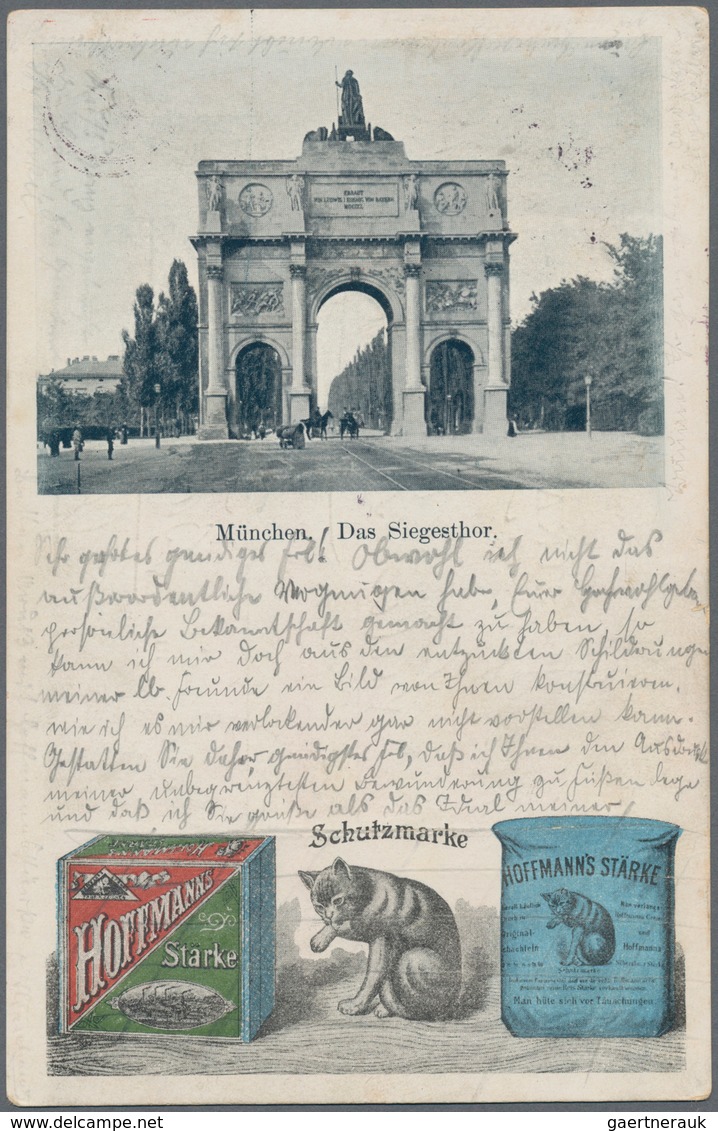 ERBAUT
VON LUDWIG I KOENIG VON BAYERN
MDCCCL
München. Das Siegesthor.
Sehr geehrtes gnädiges Frl! Obwohl ich nicht das
außerordentliche Vergnügen habe, Euer Hochwohlgeb.
persönliche Bekanntschaft gemacht zu haben, so
kann ich mir doch aus den entzückten Schilderungen
meiner lb. Freunde ein Bild von Ihnen konstruieren,
wie ich es mir verlockender gar nicht vorstellen kann.
Gestatten Sie daher gnädigstes Frl, daß ich Ihnen den Ausdruck
meiner unbegrenztesten Bewunderung zu Füßen lege
und daß ich Sie grüße als das Ideal meiner
Schutzmarke
HOFFMANN'S
Stärke
HOFFMANN'S STÄRKE
Man verlange
Original-
Schachteln
und
Hoffmann's
Schutzmarke
Man hüte sich vor Täuschungen.
gaertnerauk